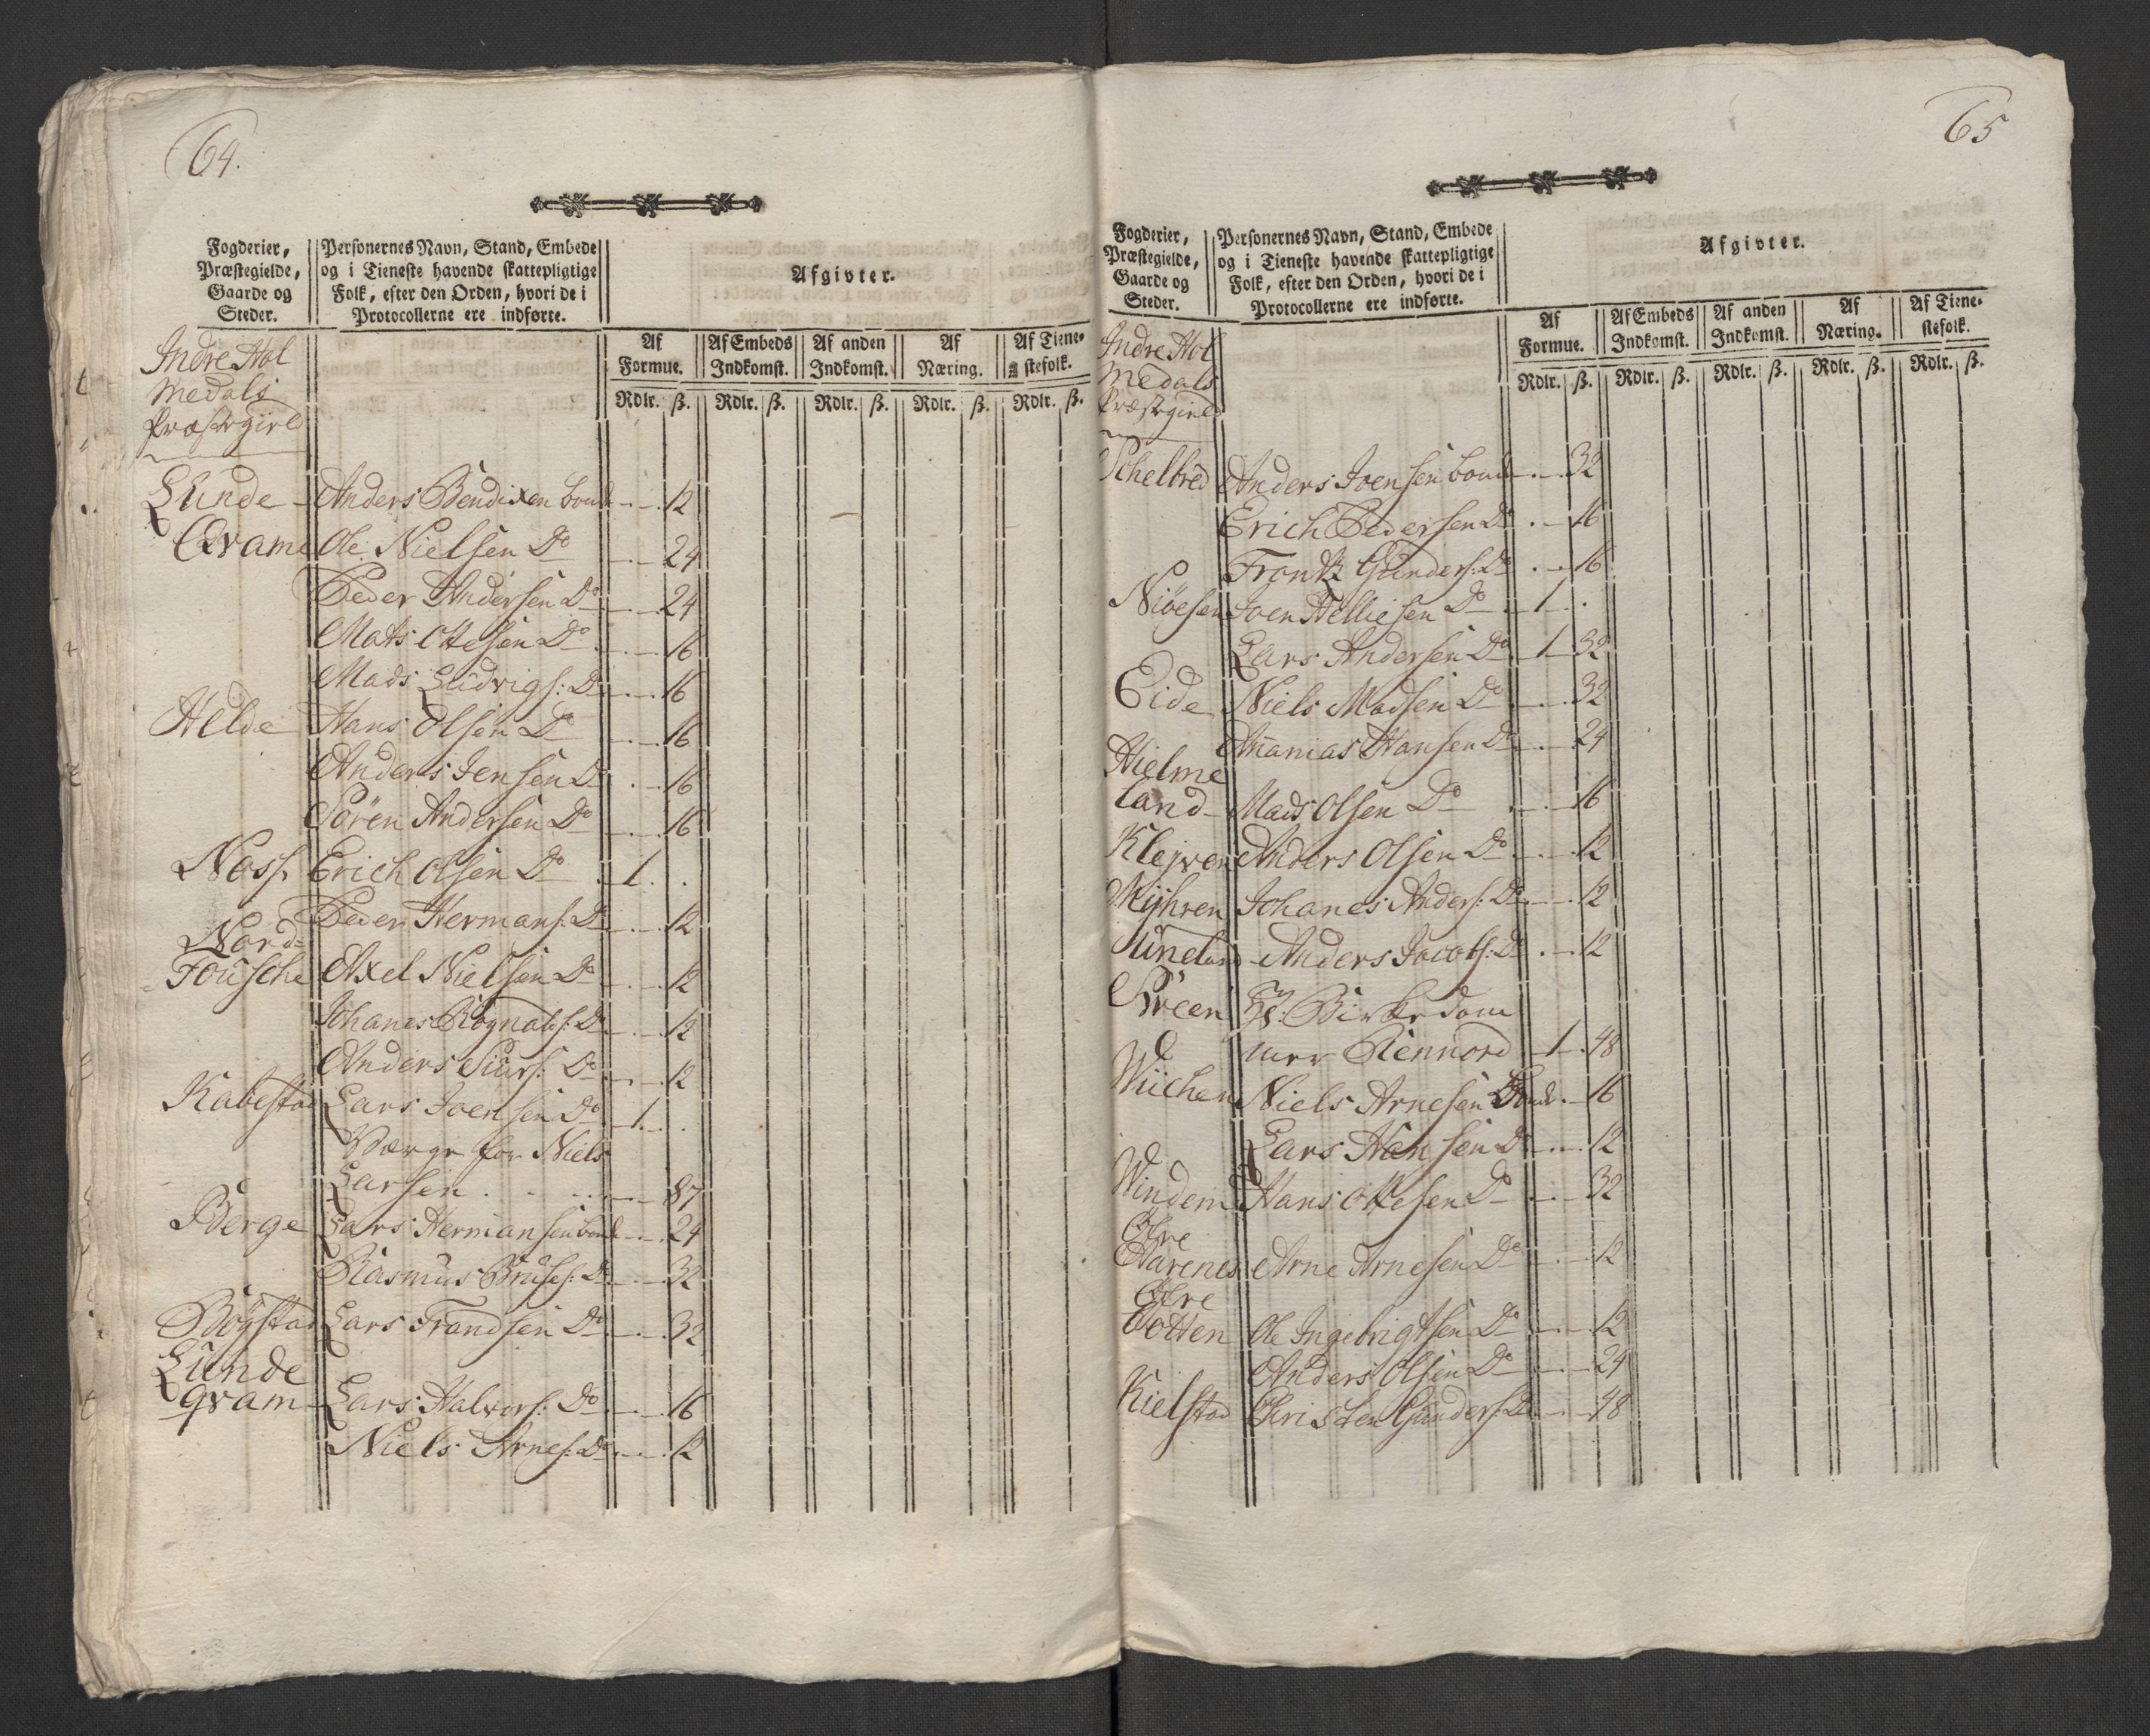 64.
Fogderier,
Præstegielde,
Gaarde og
Steder.
Personernes Navn, Stand, Embede
og i Tieneste havende skattepligtige
Folk, efter den Orden, hvori de i
Protocollerne ere indførte.
Afgivter.
Af Formue. Af Embeds Indkomst. Af anden Indkomst. Af Næring. Af Tienestefolk.
Rdlr. ß. Rdlr. ß. Rdlr. ß. Rdlr. ß. Rdlr. ß.
Indre Hol
medals
Præstegield
Lunde - Anders Bendixen bonde 12
Qvame Ole Nielsen Do 24
Peder Andersen Do 24
Mats Ottesen Do 16
Mads Ludvigs: Do 16
Helde Hans Olsen Do 16
Anders Jensen Do 16
Sören Andersen Do 16
Noss. Erich Olsen Do 1 .
Peder Hermans: Do 12
Nord-
Fousche Axel Nielsen Do 12
Johanes Rognalds: Do 12
Anders Siurs: Do 12
Kabestad Lars Joensen Do 1 .
Værge for Niels
Larsen 87
Berge Lars Hermansen bonde 24
Rasmus Bruses: Do 32
Bögstad Lars Frandsen Do 32
Lunde
qvam - Lars Halvors: Do 16
Niels Arnes: Do 12
65
Fogderier,
Præstegielde,
Gaarde og
Steder.
Personernes Navn, Stand, Embede
og i Tieneste havende skattepligtige
Folk, efter den Orden, hvori de i
Protocollerne ere indførte.
Afgivter.
Af Formue. Af Embeds Indkomst. Af anden Indkomst. Af Næring. Af Tienestefolk.
Rdlr. ß. Rdlr. ß. Rdlr. ß. Rdlr. ß. Rdlr. ß.
Indre Hol
medals
Præstegield
Schelbred Anders Joensen bonde 32
Erich Pedersen Do 16
Frantz Gunders: Do 16
Niöesen Joen Helliesen Do 1 .
Lars Andersen Do 1 32
Eide Niels Madsen Do 32
Ananias Hansen Do 24
Hielme
land - Mads Olsen Do 16
Klejven Anders Olsen Do 12
Myhren Johanes Anders: Do 12
Anders Jacobs: Do 12
Birkedom
mer Rennord 1 48
Wiichen Niels Arnesen Bonde 16
Lars Hansen Do 12
Windem Hans Ottesen Do 32
Öfre
Aarenes Arne Arnesen Do 12
Öfre
Totten Ole Ingebrigtsen Do 12
Anders Olsen Do 24
Kielstad Christen Gunders: Do 48